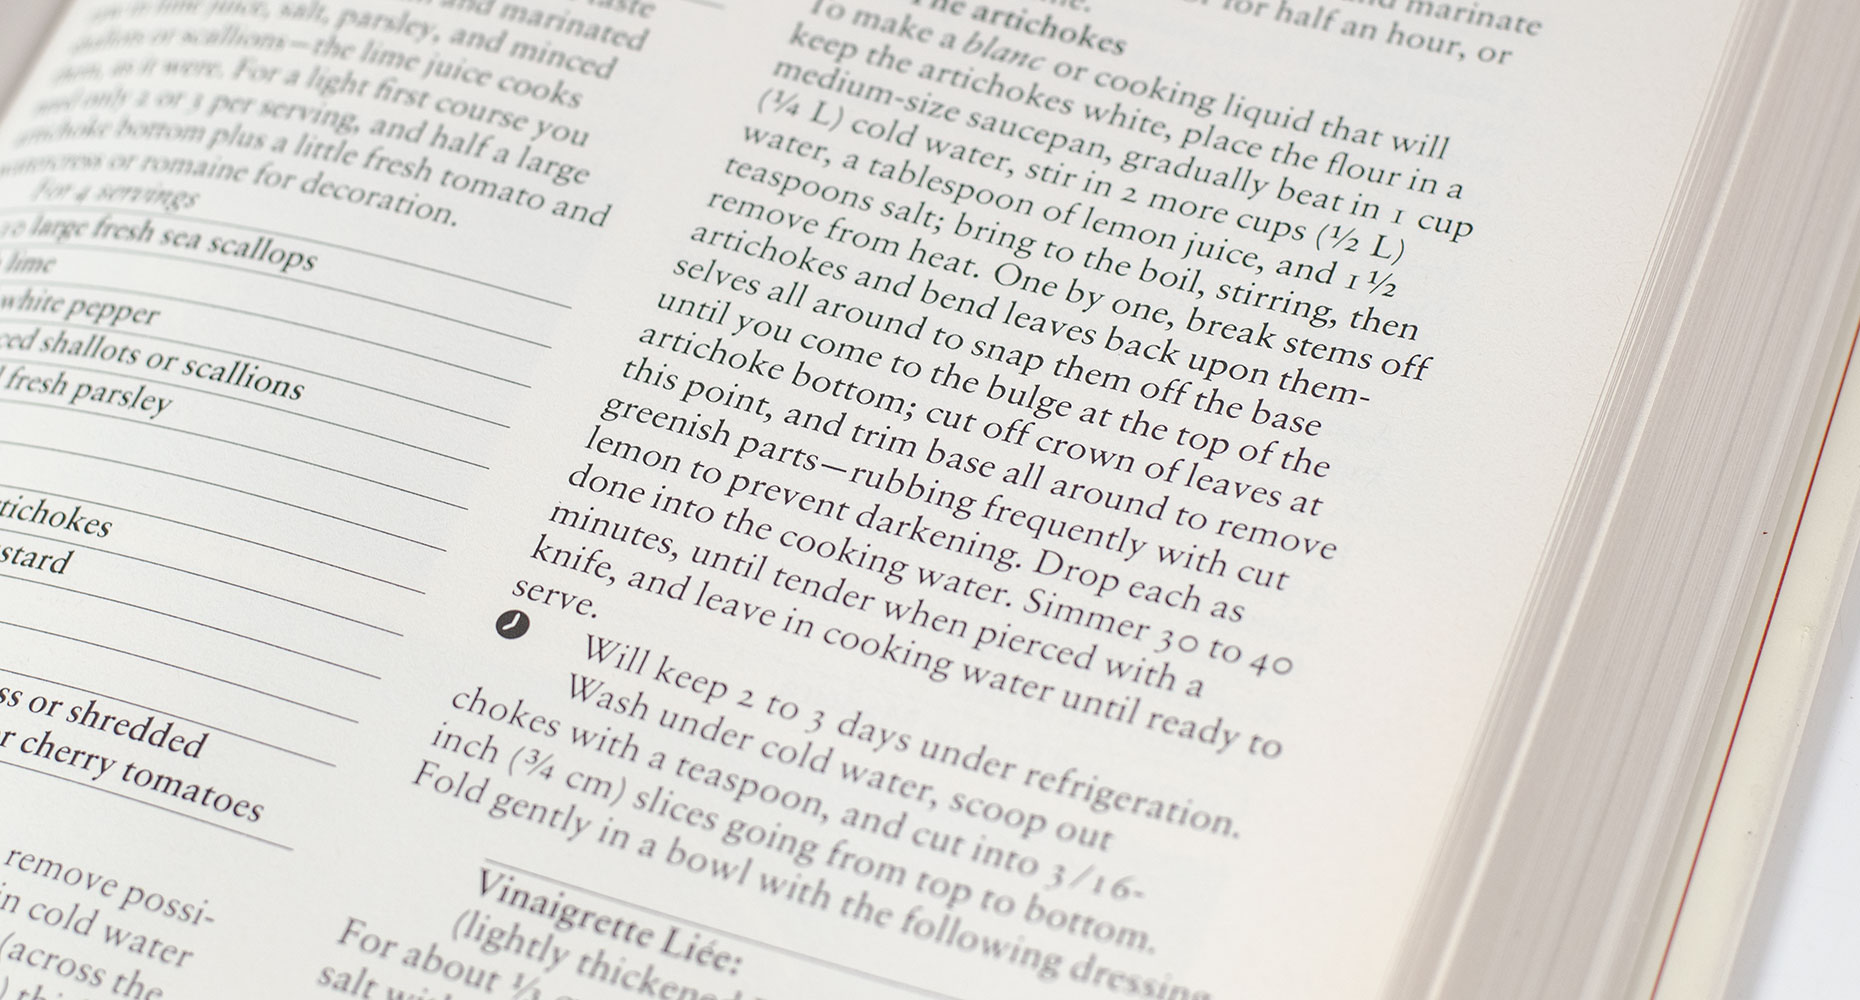 taste
and marinated
lime juice, salt, parsley, and minced
shallots or scallions—the lime juice cooks
them, as it were. For a light first course you
need only 2 or 3 per serving, and half a large
artichoke bottom plus a little fresh tomato and
watercress or romaine for decoration.
For 4 servings
10 large fresh sea scallops
lime
white pepper
ced shallots or scallions
fresh parsley
tichokes
stard
ss or shredded
r cherry tomatoes
remove possi-
in cold water
(across the
marinate
for half an hour, or
The artichokes
To make a blanc or cooking liquid that will
keep the artichokes white, place the flour in a
medium-size saucepan, gradually beat in 1 cup
(¼ L) cold water, stir in 2 more cups (½ L)
water, a tablespoon of lemon juice, and 1 ½
teaspoons salt; bring to the boil, stirring, then
remove from heat. One by one, break stems off
artichokes and bend leaves back upon them-
selves all around to snap them off the base
until you come to the bulge at the top of the
artichoke bottom; cut off crown of leaves at
this point, and trim base all around to remove
greenish parts—rubbing frequently with cut
lemon to prevent darkening. Drop each as
done into the cooking water. Simmer 30 to 40
minutes, until tender when pierced with a
knife, and leave in cooking water until ready to
serve.
Will keep 2 to 3 days under refrigeration.
Wash under cold water, scoop out
chokes with a teaspoon, and cut into 3/16-
inch (¾ cm) slices going from top to bottom.
Fold gently in a bowl with the following dressing
Vinaigrette Liée:
(lightly thickened
For about ⅓
salt